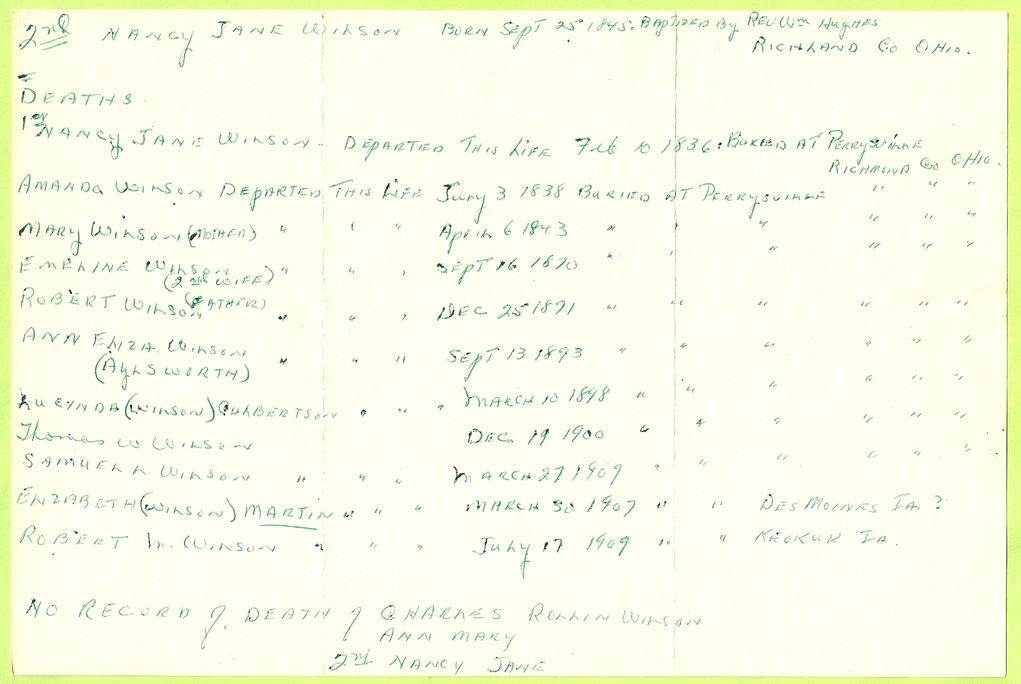 2nd NANCY JANE WILSON BORN SEPT 25 1845. BAPTIZED By REV Wm HUGHES
RICHLAND Co OHIO.
DEATHS.
1st NANCY JANE WILSON - DEPARTED THIS LIFE Feb 10 1836. BURIED AT PERRYSVILLE
RICHMOND Co OHIO.
AMANDA WILSON DEPARTED THIS LIFE July 3 1838 BURIED AT PERRYSVILLE " " "
MARY WILSON (MOTHER) " " " APRIL 6 1843 " " " " "
EMELINE WILSON " " " SEPT 16 1870 " " " " "
(2nd WIFE)
ROBERT WILSON (FATHER) " " " DEC 25 1871 " " " " " "
ANN ELIZA. WILSON " " " SEPT 13 1893 " " " " " "
(AYLSWORTH)
LUCYNDA (WILSON) CULBERTSON " " " MARCH 10 1898 " " " " " "
Thomas W WILSON DEC 19 1900 " " " " " "
SAMUEL L. WILSON " " " MARCH 27 1909 " " " " " "
ELIZABETH (WILSON) MARTIN " " " MARCH 30 1907 " " DES MOINES IA ?
ROBERT M. WILSON " " " July 17 1909 " " KEOKUK IA.
NO RECORD of DEATH of CHARLES ROLLIN WILSON
ANN MARY
2nd NANCY JANE